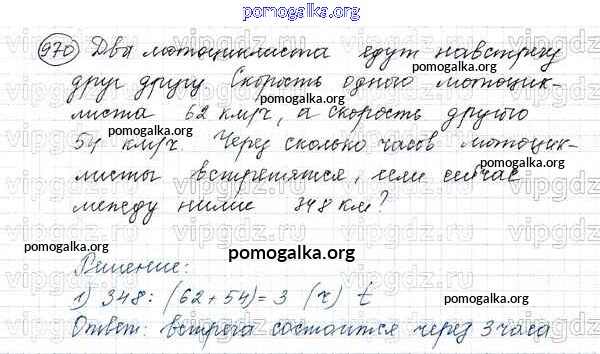 pomogalka.org
970 Два мотоциклиста едут навстречу
pomogalka.org
друг другу. Скорость одного мотоцик-
pomogalka.org
листа 62 км/ч, а скорость другого
pomogalka.org
54 км/ч. Через сколько часов мотоцик-
pomogalka.org
листы встретятся, если сейчас
между ними 348 км?
pomogalka.org
pomogalka.org
pomogalka.org
Решение:
1) 348 : (62 + 54) = 3 (ч) t
pomogalka.org
Ответ: встреча состоится через 3 часа
vipgdz.ru